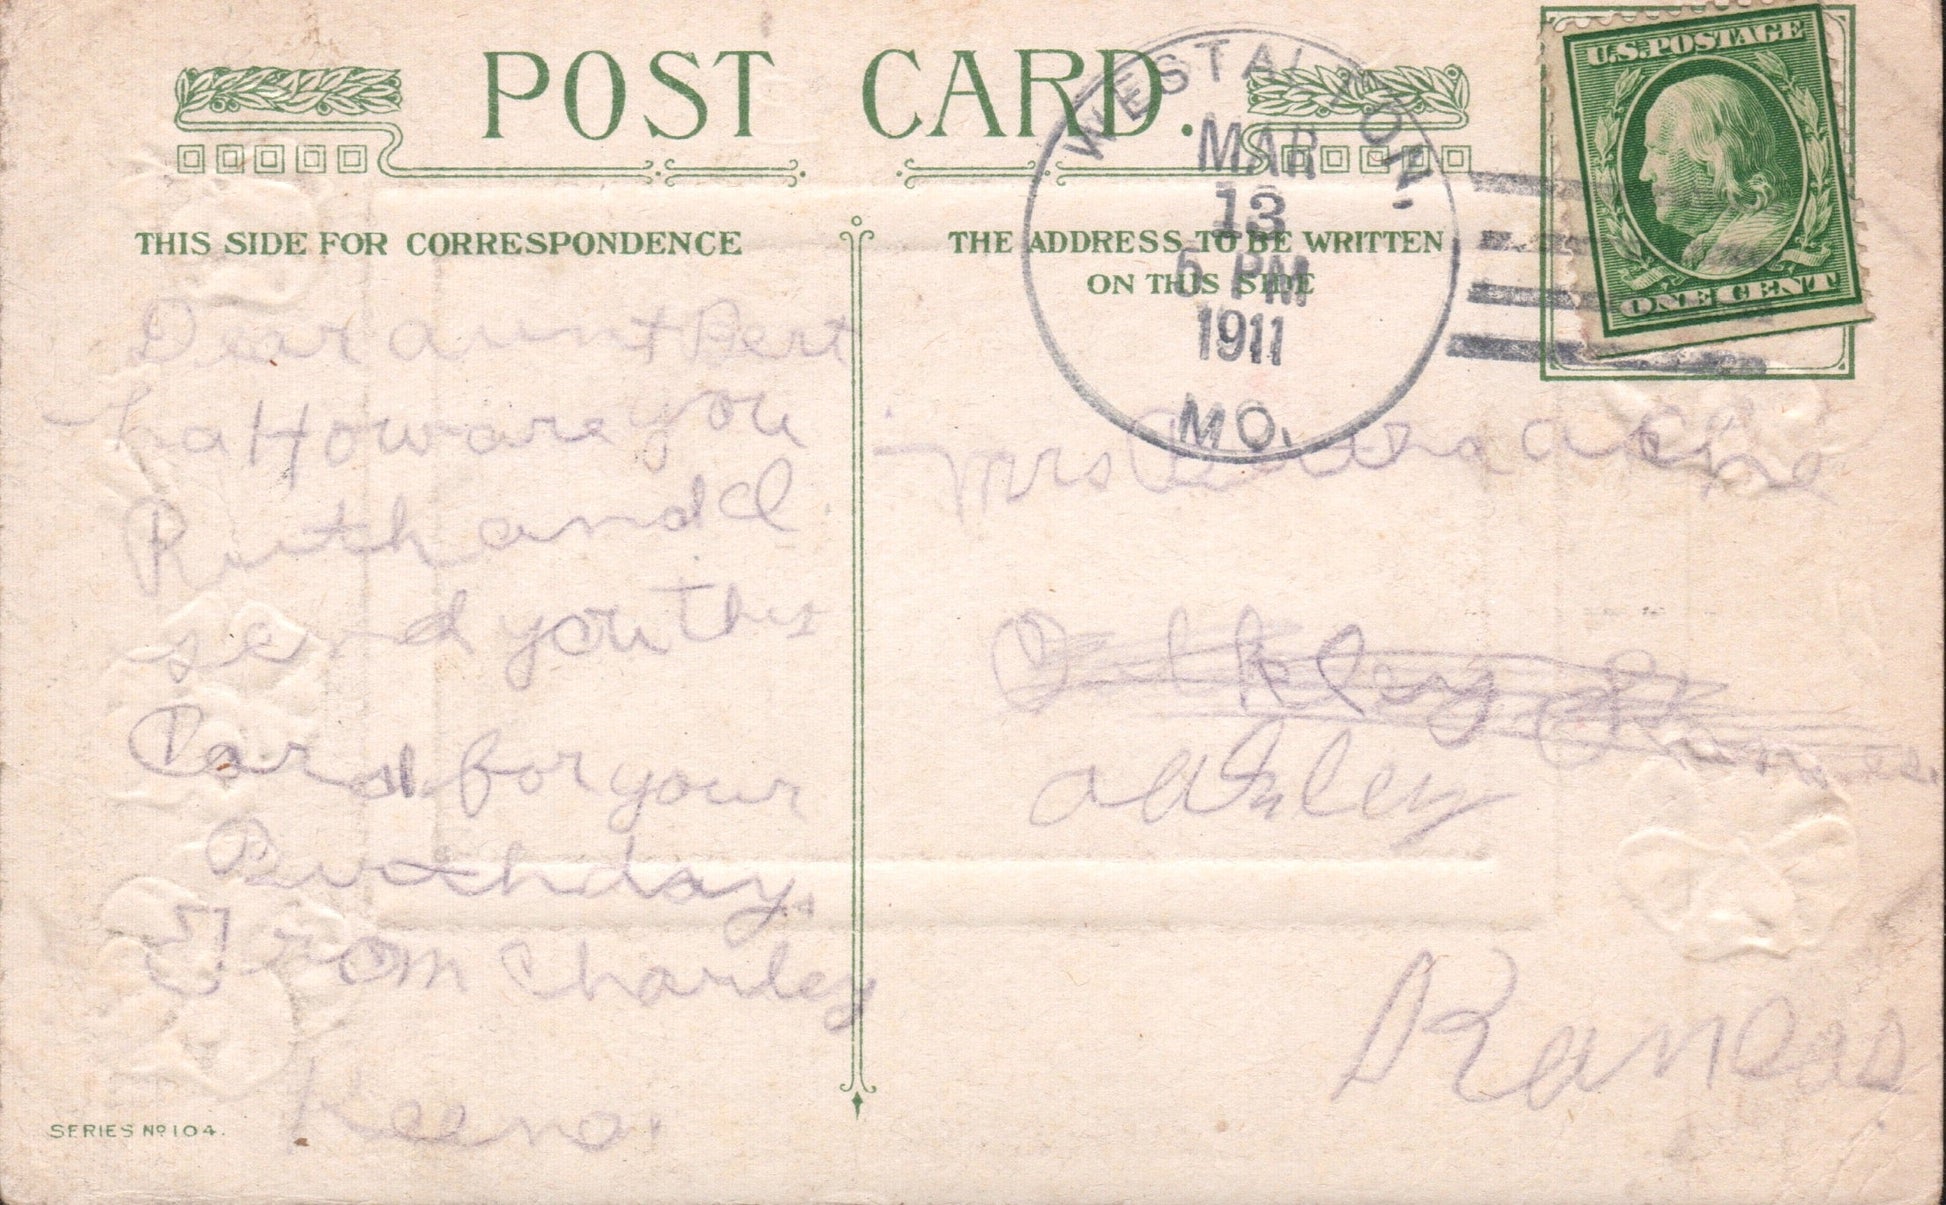 POST CARD.
THIS SIDE FOR CORRESPONDENCE
THE ADDRESS TO BE WRITTEN
ON THIS SIDE
U.S. POSTAGE
ONE CENT
WEST ALTON.
MAR
13
5 PM
1911
MO.
Dear aunt Bert
ha How are you
Ruth and I
send you this
Card for your
Birthday.
From Charley
Keeno.
Mrs
Kansas
SERIES Nº 104.